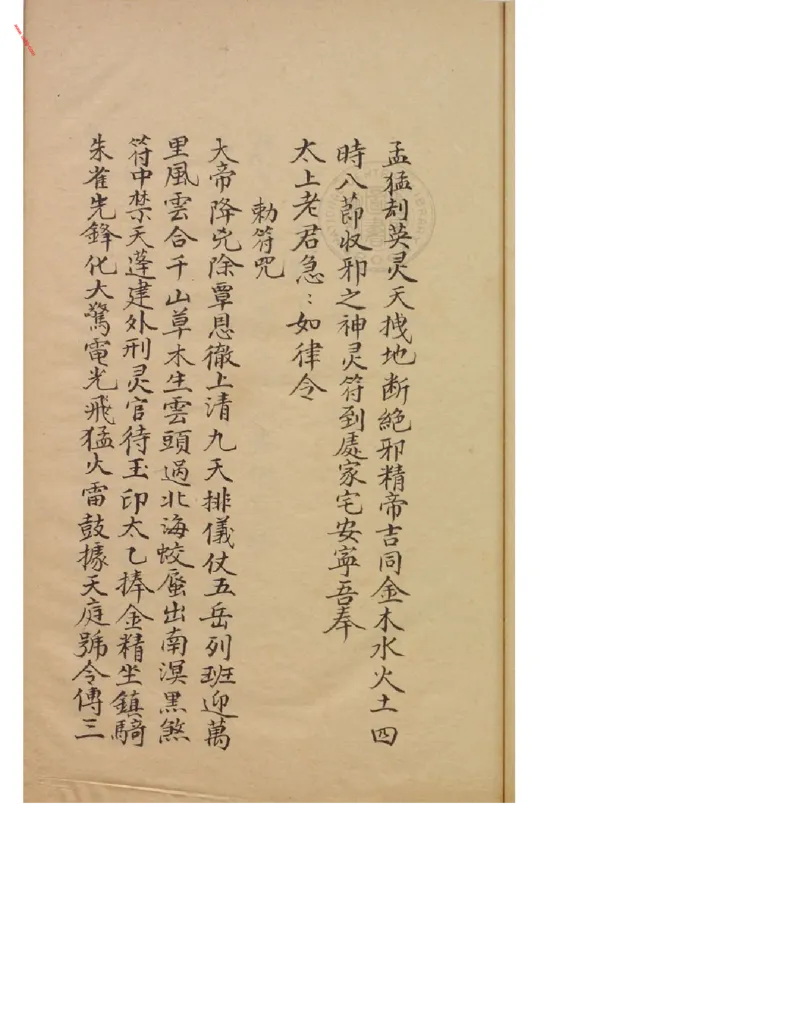 孟猛刦英灵天拽地断絕邪精帝吉同金木水火土四
時八莭收邪之神灵符到處家宅安寧吾奉
太上老君急：如律令
勅符咒
大帝降兇除覃恩徹上清九天排儀仗五岳列班迎萬
里風雲合千山草木生雲頭過北海蛟蜃出南溟黒煞
符中禁天蓬建外刑灵官待玉印太乙捧金精坐鎮騎
朱雀先鋒化大驚電光飛猛火雷鼓據天庭號令傳三